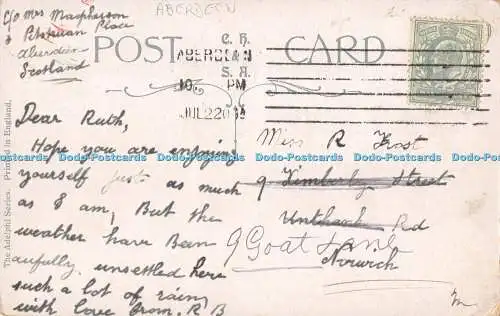 ABERDEEN
c/o Mrs Macpherson
Place
Aberdeen
Scotland
POST CARD
C. H.
ABERDEEN
S. A.
10 PM
JUL 22 09
Dear Ruth,
Hope you are enjoying
yourself just as much
as I am, But the
weather have Been
awfully unsettled here
such a lot of rain,
with love from R B
Miss R
9 Kimberly Street
Unthank Rd
9 Goat Lane
Norwich
The Adelphi Series. Printed in England.
Dodo-Postcards Dodo-Postcards Dodo-Postcards Dodo-Postcards Dodo-Postcards
Dodo-Postcards Dodo-Postcards Dodo-Postcards Dodo-Postcards Dodo-Postcards